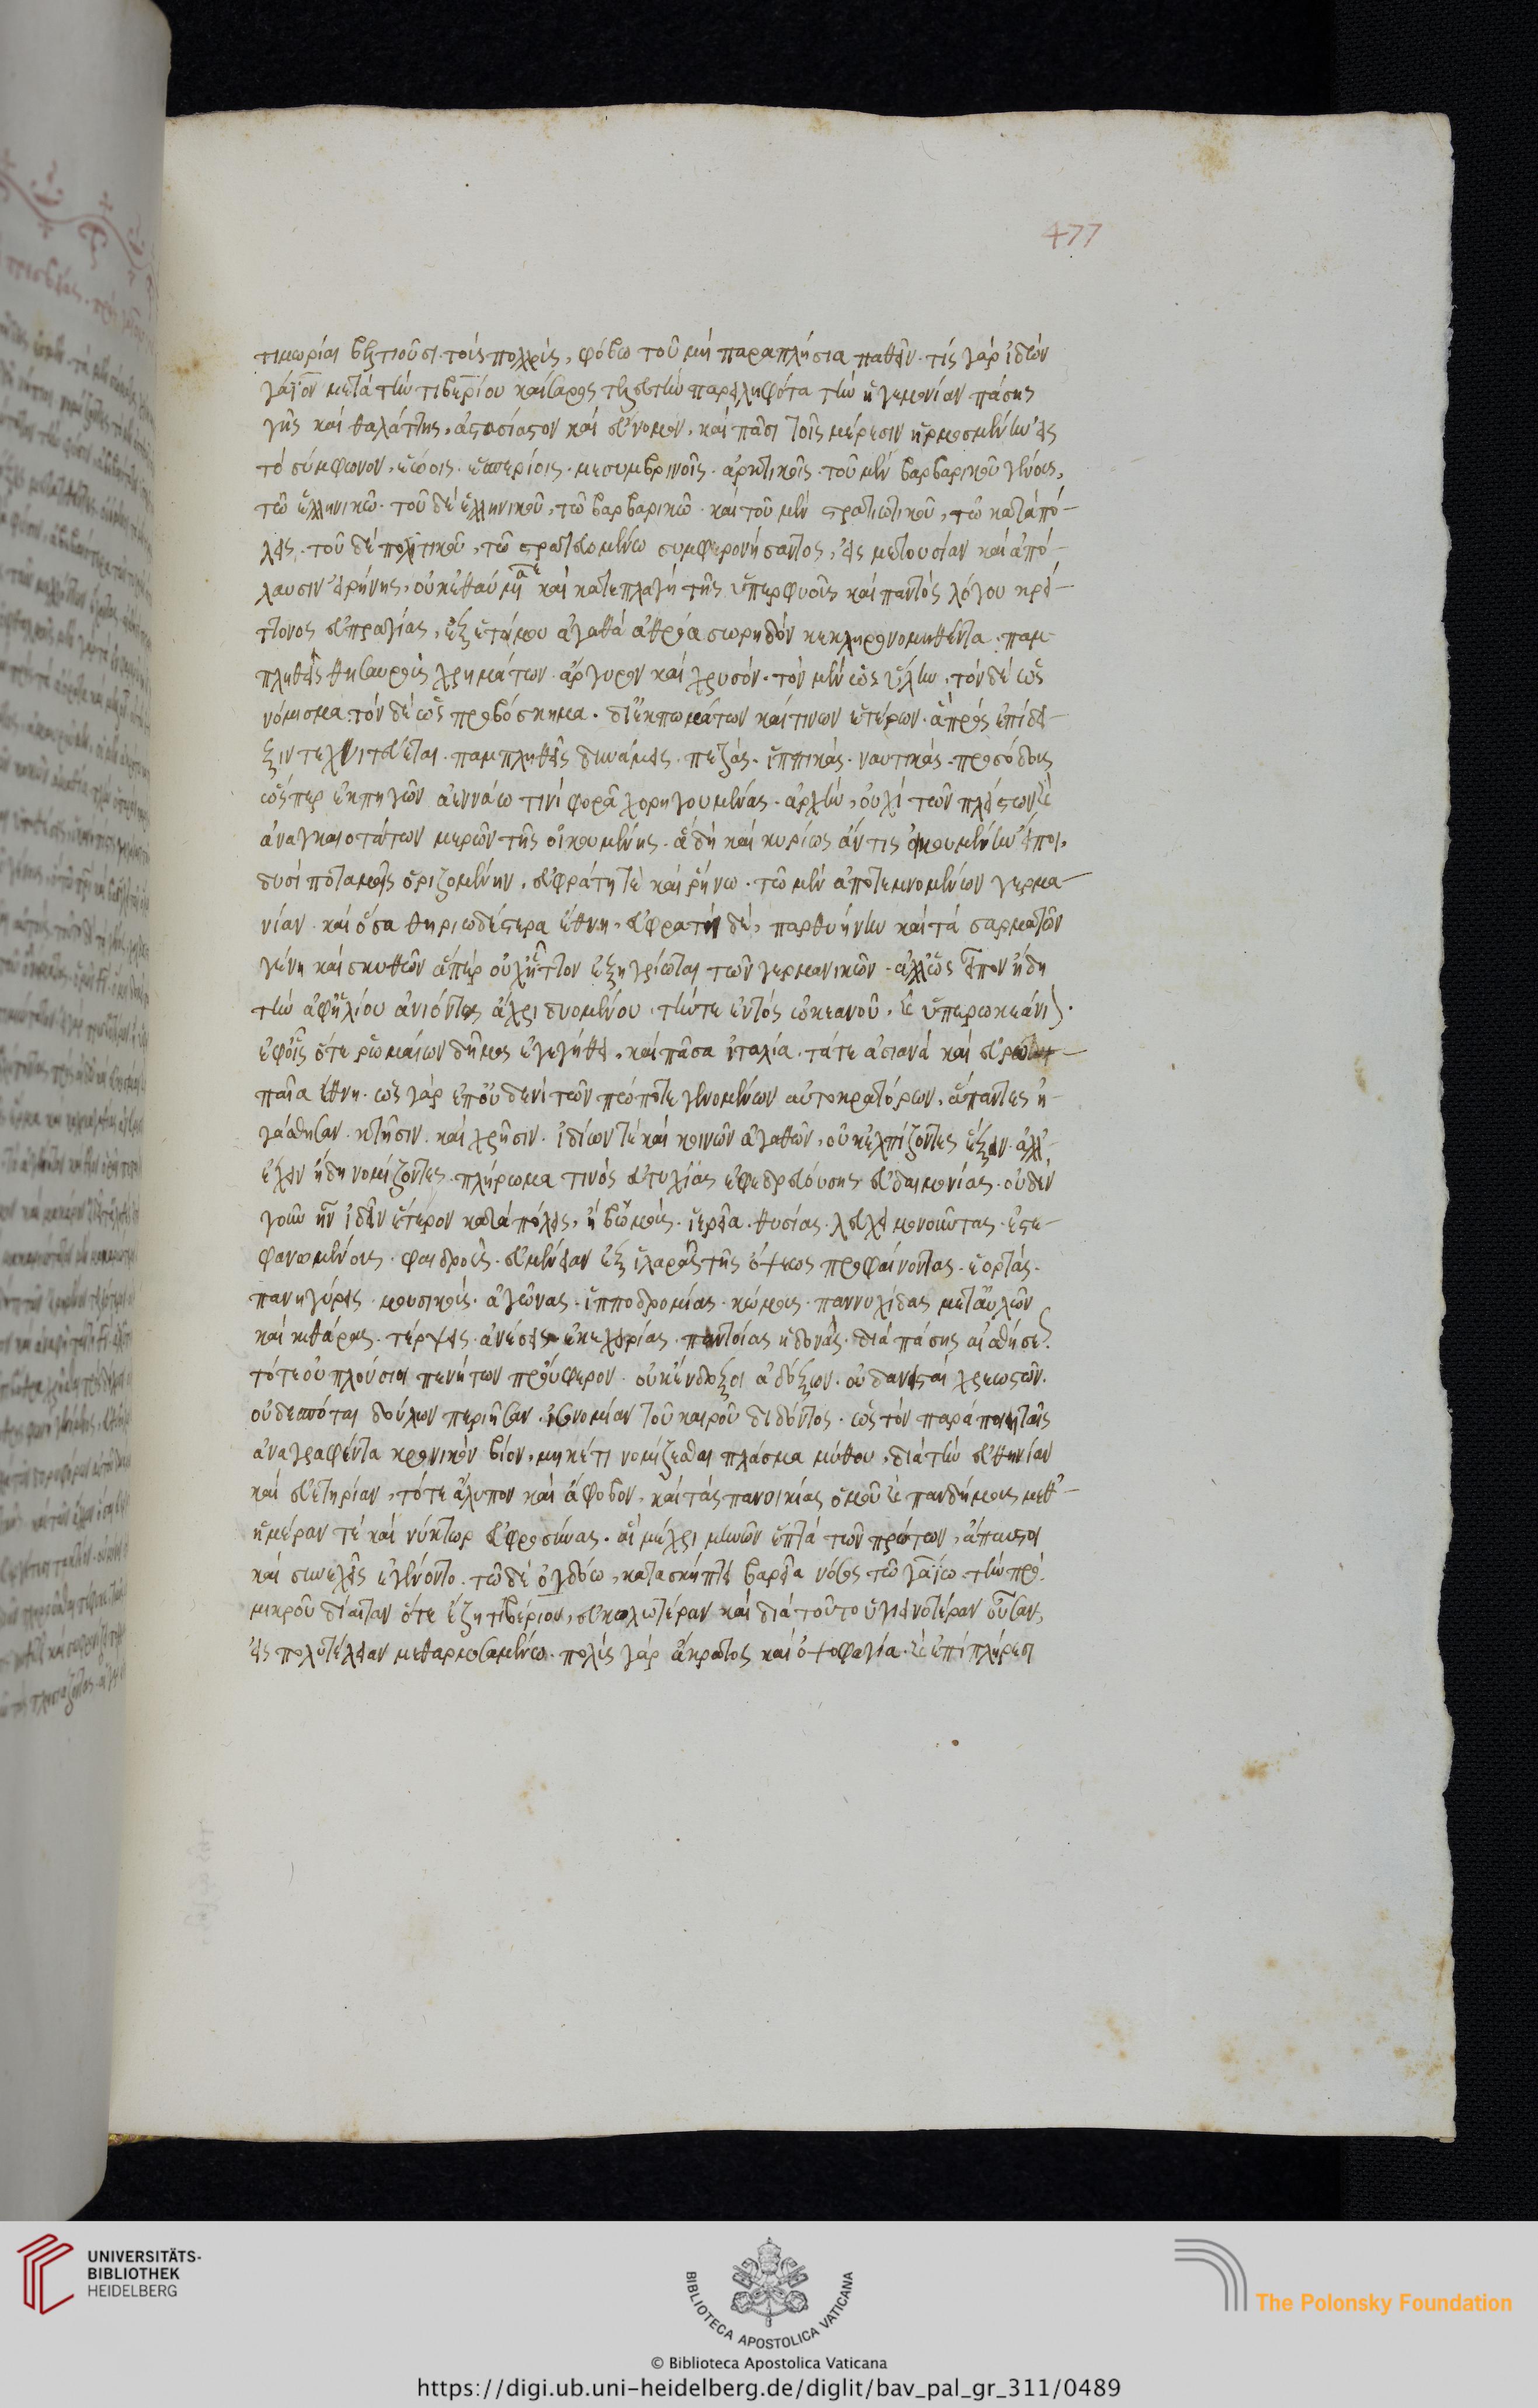 477
τιμωρίαι βελτιοῦσι τοὺς πολλοὺς, φόβω τοῦ μὴ παραπλήσια παθεῖν. τίς γὰρ ἰδὼν
γάϊον μετὰ τὴν τιβερίου καίσαρος τελευτὴν παρειληφότα τὴν ἡγεμονίαν πάσης
γῆς καὶ θαλάττης, ἀστασίαστον καὶ εὔνομον, καὶ πᾶσι τοῖς μέρεσιν ἡρμοσμένην εἰς
τὸ σύμφωνον, ἑώοις. ἑσπερίοις. μεσημβρινοῖς. ἀρκτικοῖς. τοῦ μὲν βαρβαρικοῦ γένους,
τῶ ἑλληνικῶ. τοῦ δὲ ἑλληνικοῦ, τῶ βαρβαρικῶ. καὶ τοῦ μὲν στρατιωτικοῦ, τῶ κατὰ πό-
λεις. τοῦ δὲ πολιτικοῦ, τῶ στρατευομένω συμφρονήσαντος, εἰς μετουσίαν καὶ ἀπό-
λαυσιν εἰρήνης, οὐκ ἐθαύμασε καὶ κατεπλάγη τῆς ὑπερφυοῦς καὶ παντὸς λόγου κρεί-
ττονος εὐπραγίας, ἐξ ἑτοίμου ἀγαθὰ ἀθρόα σωρηδὸν κεκληρονομηκότα. παμ-
πληθεῖς θησαυροὺς χρημάτων. ἄργυρον καὶ χρυσόν. τὸν μὲν ὡς ὕλην. τὸν δὲ ὡς
νόμισμα. τὸν δὲ ὡς προκόσμημα. δι' ἐκπωμάτων καί τινων ἑτέρων. ἃ πρὸς ἐπίδει-
ξιν τεχνιτεύεται. παμπληθεῖς δυνάμεις. πεζάς. ἱππικάς. ναυτικάς. προσόδους
ὥσπερ ἐκ πηγῶν ἀεννάω τινὶ φορᾶ χορηγουμένας. ἀρχὴν, οὐχὶ τῶν πλείστων καὶ
ἀναγκαιοτάτων μερῶν τῆς οἰκουμένης. ἃ δὴ καὶ κυρίως ἄν τις οἰκουμένην εἴποι.
δυσὶ ποταμοῖς ὁριζομένην. εὐφράτη τὲ καὶ ῥήνω. τῶ μὲν ἀποτεμνομένων γερμα-
νίαν. καὶ ὅσα θηριωδέστερα ἔθνη. εὐφράτη δὲ, παρθυήνην καὶ τὰ σαρματῶν
γένη καὶ σκυθῶν ἅπερ οὐχ ἧττον ἐξηγρίωται τῶν γερμανικῶν. ἀλλ' ὡς εἶπον ἤδη
τὴν ἀφ' ἡλίου ἀνιόντος ἄχρι δυομένου. τήν τε ἐντὸς ὠκεανοῦ. καὶ ὑπερωκεάνιον.
ἐφ' οἷς ὅ τε ῥωμαίων δῆμος ἐγεγήθει. καὶ πᾶσα ἰταλία. τά τε ἀσιανὰ καὶ εὐρω-
παῖα ἔθνη. ὡς γὰρ ἐπ' οὐδενὶ τῶν πώποτε γενομένων αὐτοκρατόρων. ἅπαντες ἠ-
γάσθησαν. κτῆσιν. καὶ χρῆσιν. ἰδίων τὲ καὶ κοινῶν ἀγαθῶν, οὐκ ἐλπίζοντες ἕξειν. ἀλλ'
ἔχειν ἤδη νομίζοντες. πλήρωμα τινὸς εὐτυχίας ἐφεδρευούσης εὐδαιμονίας. οὐδὲν
γοῦν ἦν ἰδεῖν ἕτερον κατὰ πόλεις, ἢ βωμοὺς. ἱερεῖα. θυσίας. λευχειμονοῦντας. ἐστε-
φανωμένους. φαιδροὺς. εὐμένειαν ἐξ ἱλαρᾶς τῆς ὄψεως προφαίνοντας. ἑορτάς.
πανηγύρεις. μουσικοὺς. ἀγῶνας. ἱπποδρομίας. κώμους. παννυχίδας μετ' αὐλῶν
καὶ κιθάρας. τέρψεις. ἀνέσεις. ἐκεχειρίας. παντοίας ἡδονὰς. διὰ πάσης αἰσθήσεως.
τότε οὐ πλούσιοι πενήτων προύφερον. οὐκ ἔνδοξοι ἀδόξων. οὐ δανεισταὶ χρεωστῶν.
οὐ δεσπόται δούλων περιῆσαν. ἰσονομίαν τοῦ καιροῦ διδόντος. ὡς τὸν παρὰ ποιηταῖς
ἀναγραφέντα κρονικὸν βίον, μηκέτι νομίζεσθαι πλάσμα μύθου, διὰ τὴν εὐθηνίαν
καὶ εὐετηρίαν, τό τε ἄλυπον καὶ ἄφοβον. καὶ τὰς πανοικίας ὁμοῦ καὶ πανδήμους μεθ'
ἡμέραν τὲ καὶ νύκτωρ εὐφροσύνας. αἳ μέχρι μηνῶν ἑπτὰ τῶν πρώτων, ἄπαυστοι
καὶ συνεχεῖς ἐγένοντο. τῶ δὲ ὀγδόω, κατασκήπτει βαρεῖα νόσος τῶ γαΐω. τὴν πρὸ
μικροῦ δίαιταν ὅτε ἔζη τιβέριος, εὐκολωτέραν καὶ διὰ τοῦτο ὑγιεινοτέραν οὖσαν,
εἰς πολυτέλειαν μεθαρμοσαμένω. πολὺς γὰρ ἄκρατος καὶ ὀψοφαγία. καὶ ἐπὶ πλήρεσι
UNIVERSITÄTS-
BIBLIOTHEK
HEIDELBERG
BIBLIOTECA APOSTOLICA VATICANA
The Polonsky Foundation
© Biblioteca Apostolica Vaticana
https://digi.ub.uni-heidelberg.de/diglit/bav_pal_gr_311/0489